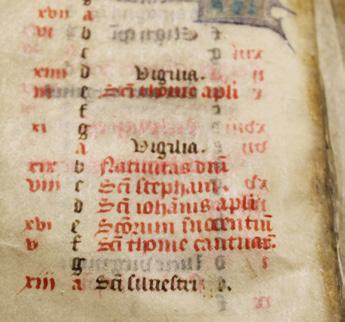 xvii a
vi b
c
xiiii d Vigilia.
iii e Sc̄i thome apli
f
xi g
a Vigilia.
xix b Natiuitas dn̄i
viii c Sc̄i stephani.
d Sc̄i ioh̄is apli
xvi e Sc̄orum innocentiū
v f Sc̄i thome cantuar.
g
xiii a Sc̄i siluestri